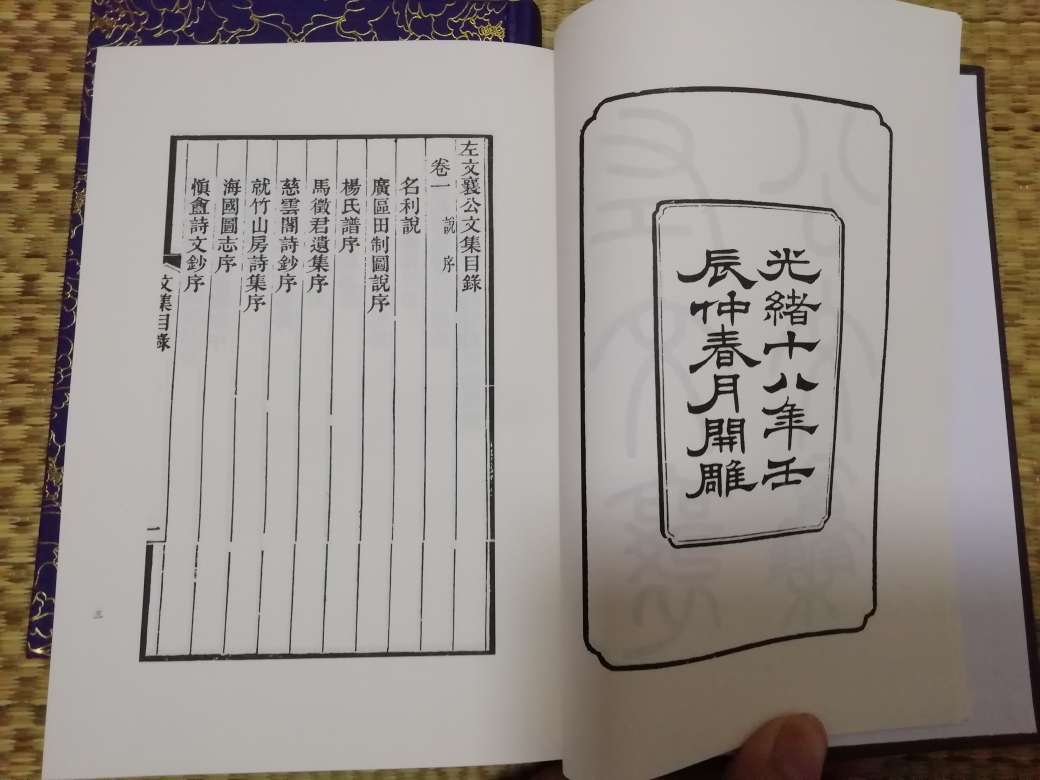 光緒十八年壬
辰仲春月開雕
左文襄公文集目錄
卷一 說 序
名利說
廣區田制圖說序
楊氏譜序
馬徵君遺集序
慈雲閣詩鈔序
就竹山房詩集序
海國圖志序
愼盦詩文鈔序
文集目錄
一
三